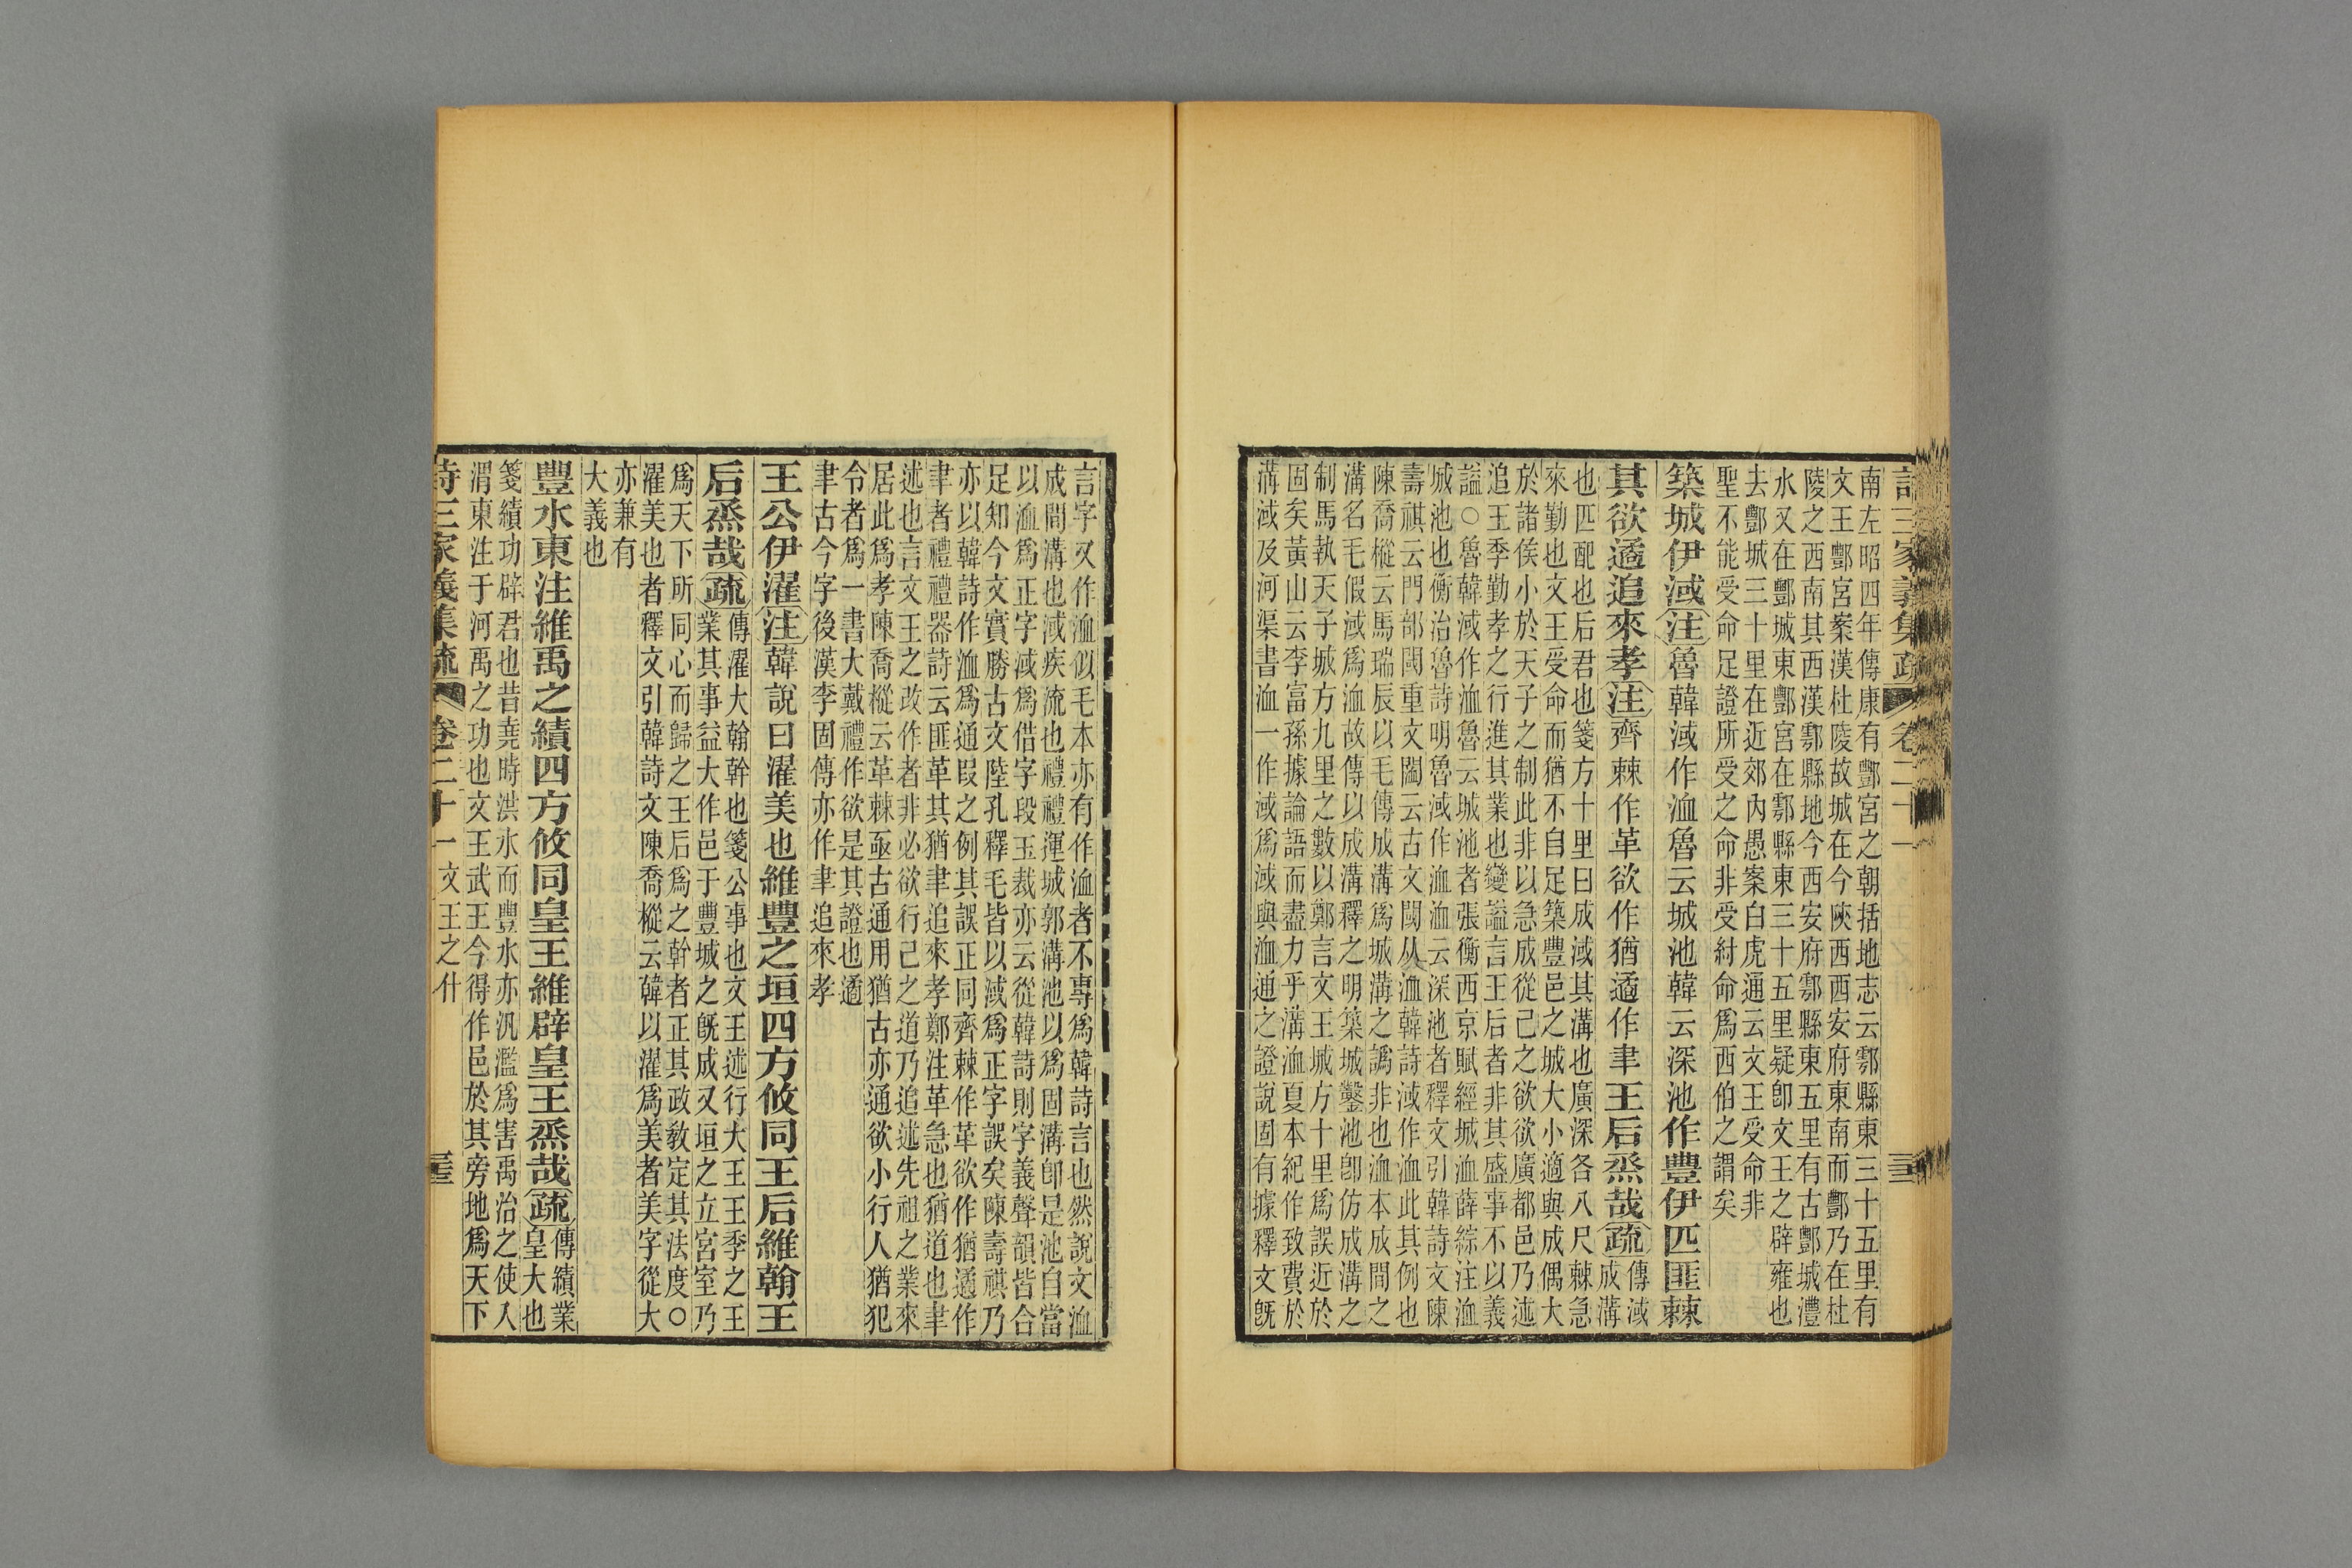 詩三家義集疏 卷二十一 三十三
南左昭四年傳康有酆宮之朝括地志云鄠縣東三十五里有
文王酆宮案漢杜陵故城在今陝西西安府東南而酆乃在杜
陵之西南其西漢鄠縣地今西安府鄠縣東五里有古酆城灃
水又在酆城東酆宮在鄠縣東三十五里疑卽文王之辟雍也
去酆城三十里在近郊內愚案白虎通云文王受命非
聖不能受命足證所受之命非受紂命爲西伯之謂矣
築城伊淢注魯韓淢作洫魯云城池韓云深池作豐伊匹匪棘
其欲遹追來孝注齊棘作革欲作猶遹作聿王后烝哉疏傳淢
成溝
也匹配也后君也箋方十里曰成淢其溝也廣深各八尺棘急
來勤也文王受命而猶不自足築豐邑之城大小適與成偶大
於諸侯小於天子之制此非以急成從己之欲欲廣都邑乃述
追王季勤孝之行進其業也變諡言王后者非其盛事不以義
諡○魯韓淢作洫魯云城池者張衡西京賦經城洫薛綜注洫
城池也衡治魯詩明魯淢作洫洫云深池者釋文引韓詩文陳
壽祺云門部閾重文䦗云古文閾从洫韓詩淢作洫此其例也
陳喬樅云馬瑞辰以毛傳成溝爲城溝之譌非也洫本成間之
溝名毛假淢爲洫故傳以成溝釋之明築城鑿池卽仿成溝之
制馬執天子城方九里之數以鄭言文王城方十里爲誤近於
固矣黃山云李富孫據論語而盡力乎溝洫夏本紀作致費於
溝淢及河渠書洫一作淢爲淢與洫通之證說固有據釋文旣
言字又作洫似毛本亦有作洫者不專爲韓詩言也然說文洫
成間溝也淢疾流也禮禮運城郭溝池以爲固溝卽是池自當
以洫爲正字淢爲借字段玉裁亦云從韓詩則字義聲韻皆合
足知今文實勝古文陸孔釋毛皆以淢爲正字誤矣陳壽祺乃
亦以韓詩作洫爲通叚之例其誤正同齊棘作革欲作猶遹作
聿者禮禮器詩云匪革其猶聿追來孝鄭注革急也猶道也聿
述也言文王之改作者非必欲行己之道乃追述先祖之業來
居此爲孝陳喬樅云革棘亟古通用猶古亦通欲小行人猶犯
令者爲一書大戴禮作欲是其證也遹
聿古今字後漢李固傳亦作聿追來孝
王公伊濯注韓說曰濯美也維豐之垣四方攸同王后維翰王
后烝哉疏傳濯大翰幹也箋公事也文王述行大王王季之王
業其事益大作邑于豐城之旣成又垣之立宮室乃
爲天下所同心而歸之王后爲之幹者正其政敎定其法度○
濯美也者釋文引韓詩文陳喬樅云韓以濯爲美者美字從大
亦兼有
大義也
豐水東注維禹之績四方攸同皇王維辟皇王烝哉疏傳績業
皇大也
箋績功辟君也昔堯時洪水而豐水亦汎濫爲害禹治之使入
渭東注于河禹之功也文王武王今得作邑於其旁地爲天下
詩三家義集疏 卷二十一 文王之什 三十三